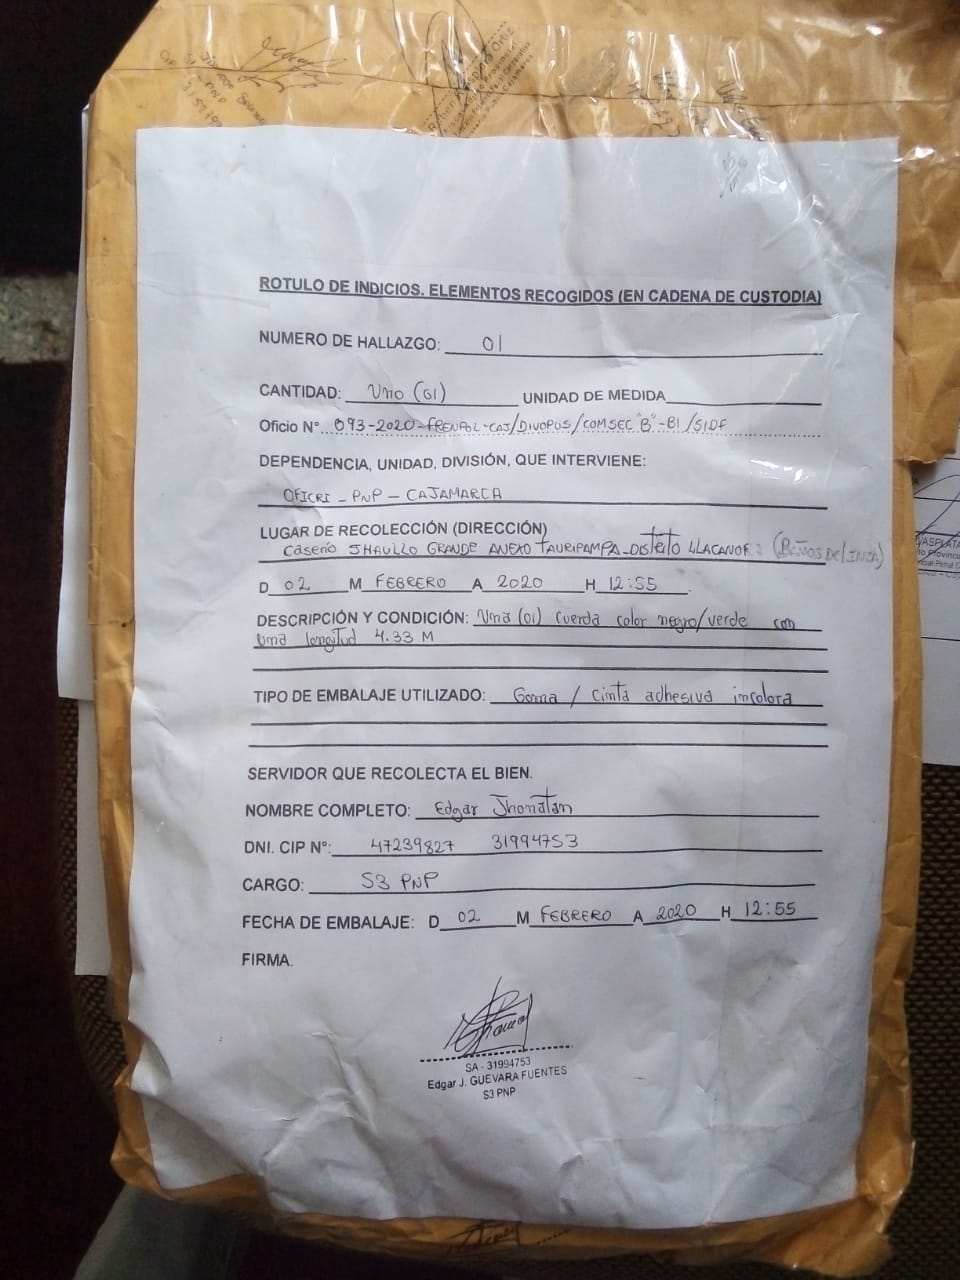 ROTULO DE INDICIOS. ELEMENTOS RECOGIDOS (EN CADENA DE CUSTODIA)
NUMERO DE HALLAZGO: 01
CANTIDAD: Uno (01) UNIDAD DE MEDIDA
Oficio N° 093-2020-FRENPOL-CAJ/DIVOPUS/COMSEC"B"-BI/SIDF
DEPENDENCIA, UNIDAD, DIVISIÓN, QUE INTERVIENE:
OFICRI - PNP - CAJAMARCA
LUGAR DE RECOLECCIÓN (DIRECCIÓN)
Caserio SHAULLO GRANDE ANEXO TAURIPAMPA - Distrito LLACANORA (BAÑOS DEL INCA)
D 02 M FEBRERO A 2020 H 12:55
DESCRIPCIÓN Y CONDICIÓN: Una (01) cuerda color negro/verde con
una longitud 4.33 M
TIPO DE EMBALAJE UTILIZADO: Goma / cinta adhesiva incolora
SERVIDOR QUE RECOLECTA EL BIEN.
NOMBRE COMPLETO: Edgar Jhonatan
DNI. CIP N°: 47239827 31994753
CARGO: S3 PNP
FECHA DE EMBALAJE: D 02 M FEBRERO A 2020 H 12:55
FIRMA.
SA - 31994753
Edgar J. GUEVARA FUENTES
S3 PNP